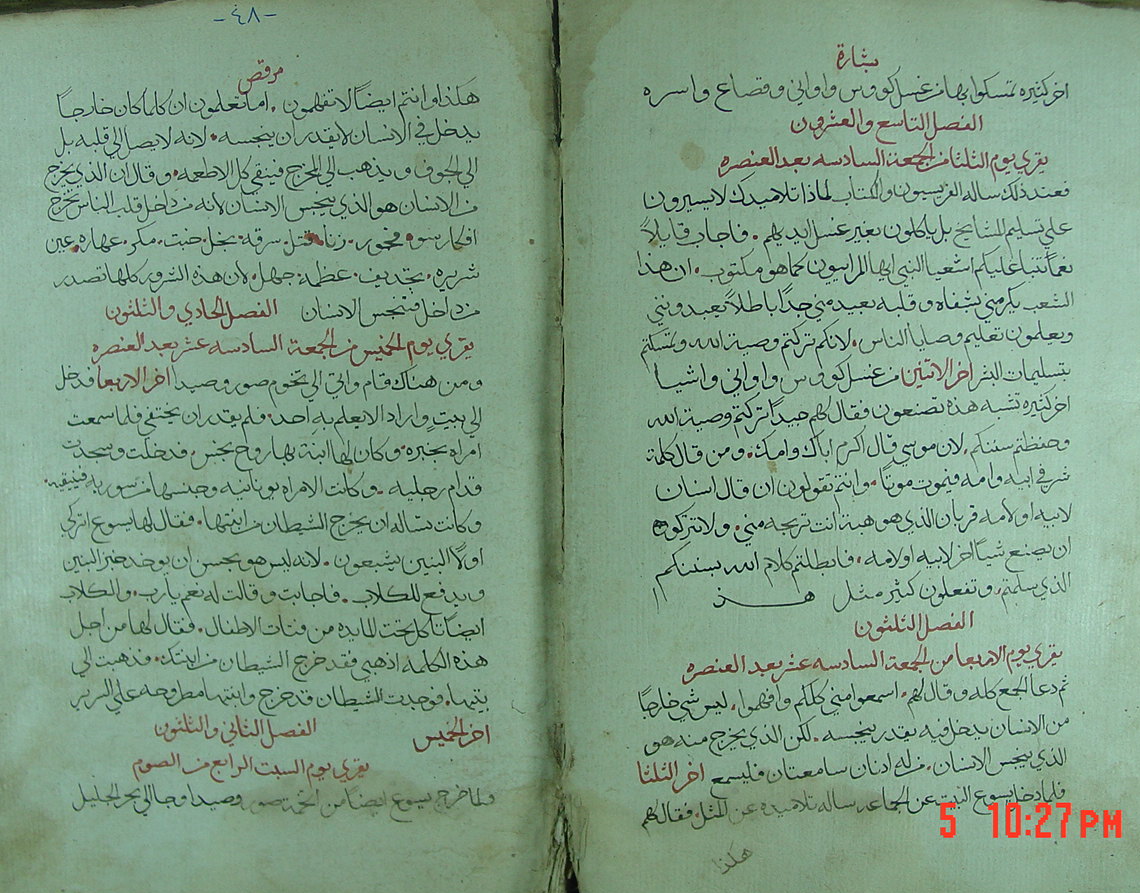 بشارة
اخر كثيره تمسكوا بها من غسل كووس واواني وقصاع واسره
الفصل التاسع والعشرون
يقري يوم الثلثا من الجمعة السادسه بعد العنصره
فعند ذلك ساله الفريسيون والكتاب لماذا تلاميدك لا يسيرون
علي تسليم المشايخ بل ياكلون بغير غسل ايديهم . فاجاب قايلاً
نعماً تنبا عليكم اشعيا النبي ايها المراييون كما هو مكتوب . ان هذا
الشعب يكرمني بشفاه وقلبه بعيد مني جداً باطلاً يعبدونني
ويعلمون تعليم وصايا الناس . لانكم تركتم وصية الله وتمسكتم
بتسليمات البشر اخر الاتنين من غسل كووس واواني واشيا
اخر كثيره تشبه هذه تصنعون فقال لهم جيداً تركتم وصية الله
وحفظتم سننكم . لان موسي قال اكرم اباك وامك . ومن قال كلمة
شر في ابيه وامه فيموت موتاً . وانتم تقولون ان قال انسان
لابيه او لامه قربان الذي هو هبة انت تربحه مني . ولا تتركوه
ان يصنع شياً اخر لابيه او لامه . فابطلتم كلام الله بسننكم
الذي سلمتم . وتفعلون كثير مثل هذا
الفصل الثلثون
يقري يوم الاربعا من الجمعة السادسه عشر بعد العنصره
ثم دعا الجمع كله وقال لهم . اسمعوا مني كلكم وافهموا . ليس شي خارجاً
من الانسان يدخل فيه يقدر ينجسه . لكن الذي يخرج منه هو
الذي ينجس الانسان . من له ادنان سامعتان فليسمع اخر الثلثا
فلما دخل يسوع البيت عن الجماعه ساله تلاميده عن المثل . فقال لهم
هكذا
-٤٨-
مرقص
هكذا وانتم ايضاً لا تفهمون . اما تعلمون ان كلما كان خارجاً
يدخل في الانسان لا يقدر ان ينجسه . لانه لا يصل الي قلبه بل
الي الجوف ويذهب الي المخرج فينقي كل الاطعمه . وقال ان الذي يخرج
من الانسان هو الذي ينجس الانسان لانه من داخل قلب الناس تخرج
افكار سو . فجور . زنا . قتل . سرقه . بخل . خبث . مكر . عهاره . عين
شريره . تجديف . عظمة . جهل . لان هذه الشرور كلها تصدر
من داخل فتنجس الانسان الفصل الحادي والثلثون
يقري يوم الخميس من الجمعة السادسه عشر بعد العنصره
ومن هناك قام واتي الي تخوم صور وصيدا اخر الاربعا فدخل
الي بيتٍ واراد الا يعلم به احد . فلم يقدر ان يختفي فلما سمعت
امراه بخبره . وكان لها ابنة بها روح نجس . فدخلت وسجدت
قدام رجليه . وكانت الامراه يونانيه وجنسها من سوريه فينيقيه .
وكانت تساله ان يخرج الشيطان من ابنتها . فقال لها يسوع اتركي
اولاً البنين يشبعون . لانه ليس هو بحسن ان يوخد خبز البنين
ويدفع للكلاب . فاجابت وقالت له نعم يا رب . والكلاب
ايضاً تاكل تحت المايده من فتات الاطفال . فقال لها من اجل
هذه الكلمه اذهبي فقد خرج الشيطان من ابنتك . فذهبت الي
بيتها . فوجدت الشيطان قد خرج وابنتها مطروحه علي السرير
اخر الخميس الفصل الثاني والثلثون
يقري يوم السبت الرابع من الصوم
ولما خرج يسوع ايضاً من تخوم صور وصيدا وجا الي بحر الجليل
5 10:27PM